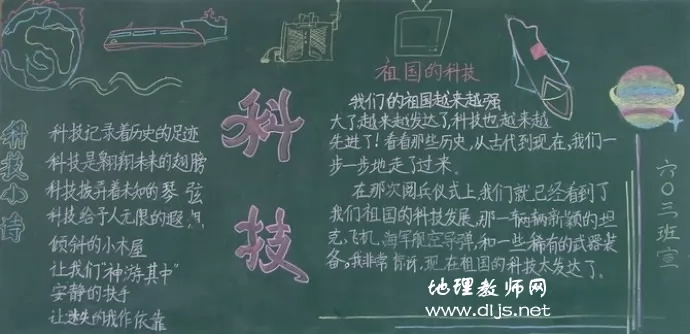 科技小诗
科技记录着历史的足迹
科技是翱翔未来的翅膀
科技拨弄着未知的琴弦
科技给予人无限的遐
倾斜的小木屋
让我们“神游其中”
安静的扶手
让迷失的我作依靠
科技
祖国的科技
我们的祖国越来越强
大了越来越发达了科技也越来越
先进了！看看那些历史，从古代到现在，我们一
步一步地走了过来。
在那次阅兵仪式上，我们就已经看到了
我们祖国的科技发展，那一辆辆新颖的坦
克，飞机，海军航空导弹，和一些稀有的武器装
备。我非常惊讶，现在祖国的科技太发达了。
六〇三班宣
地理教师网
www.dljs.net